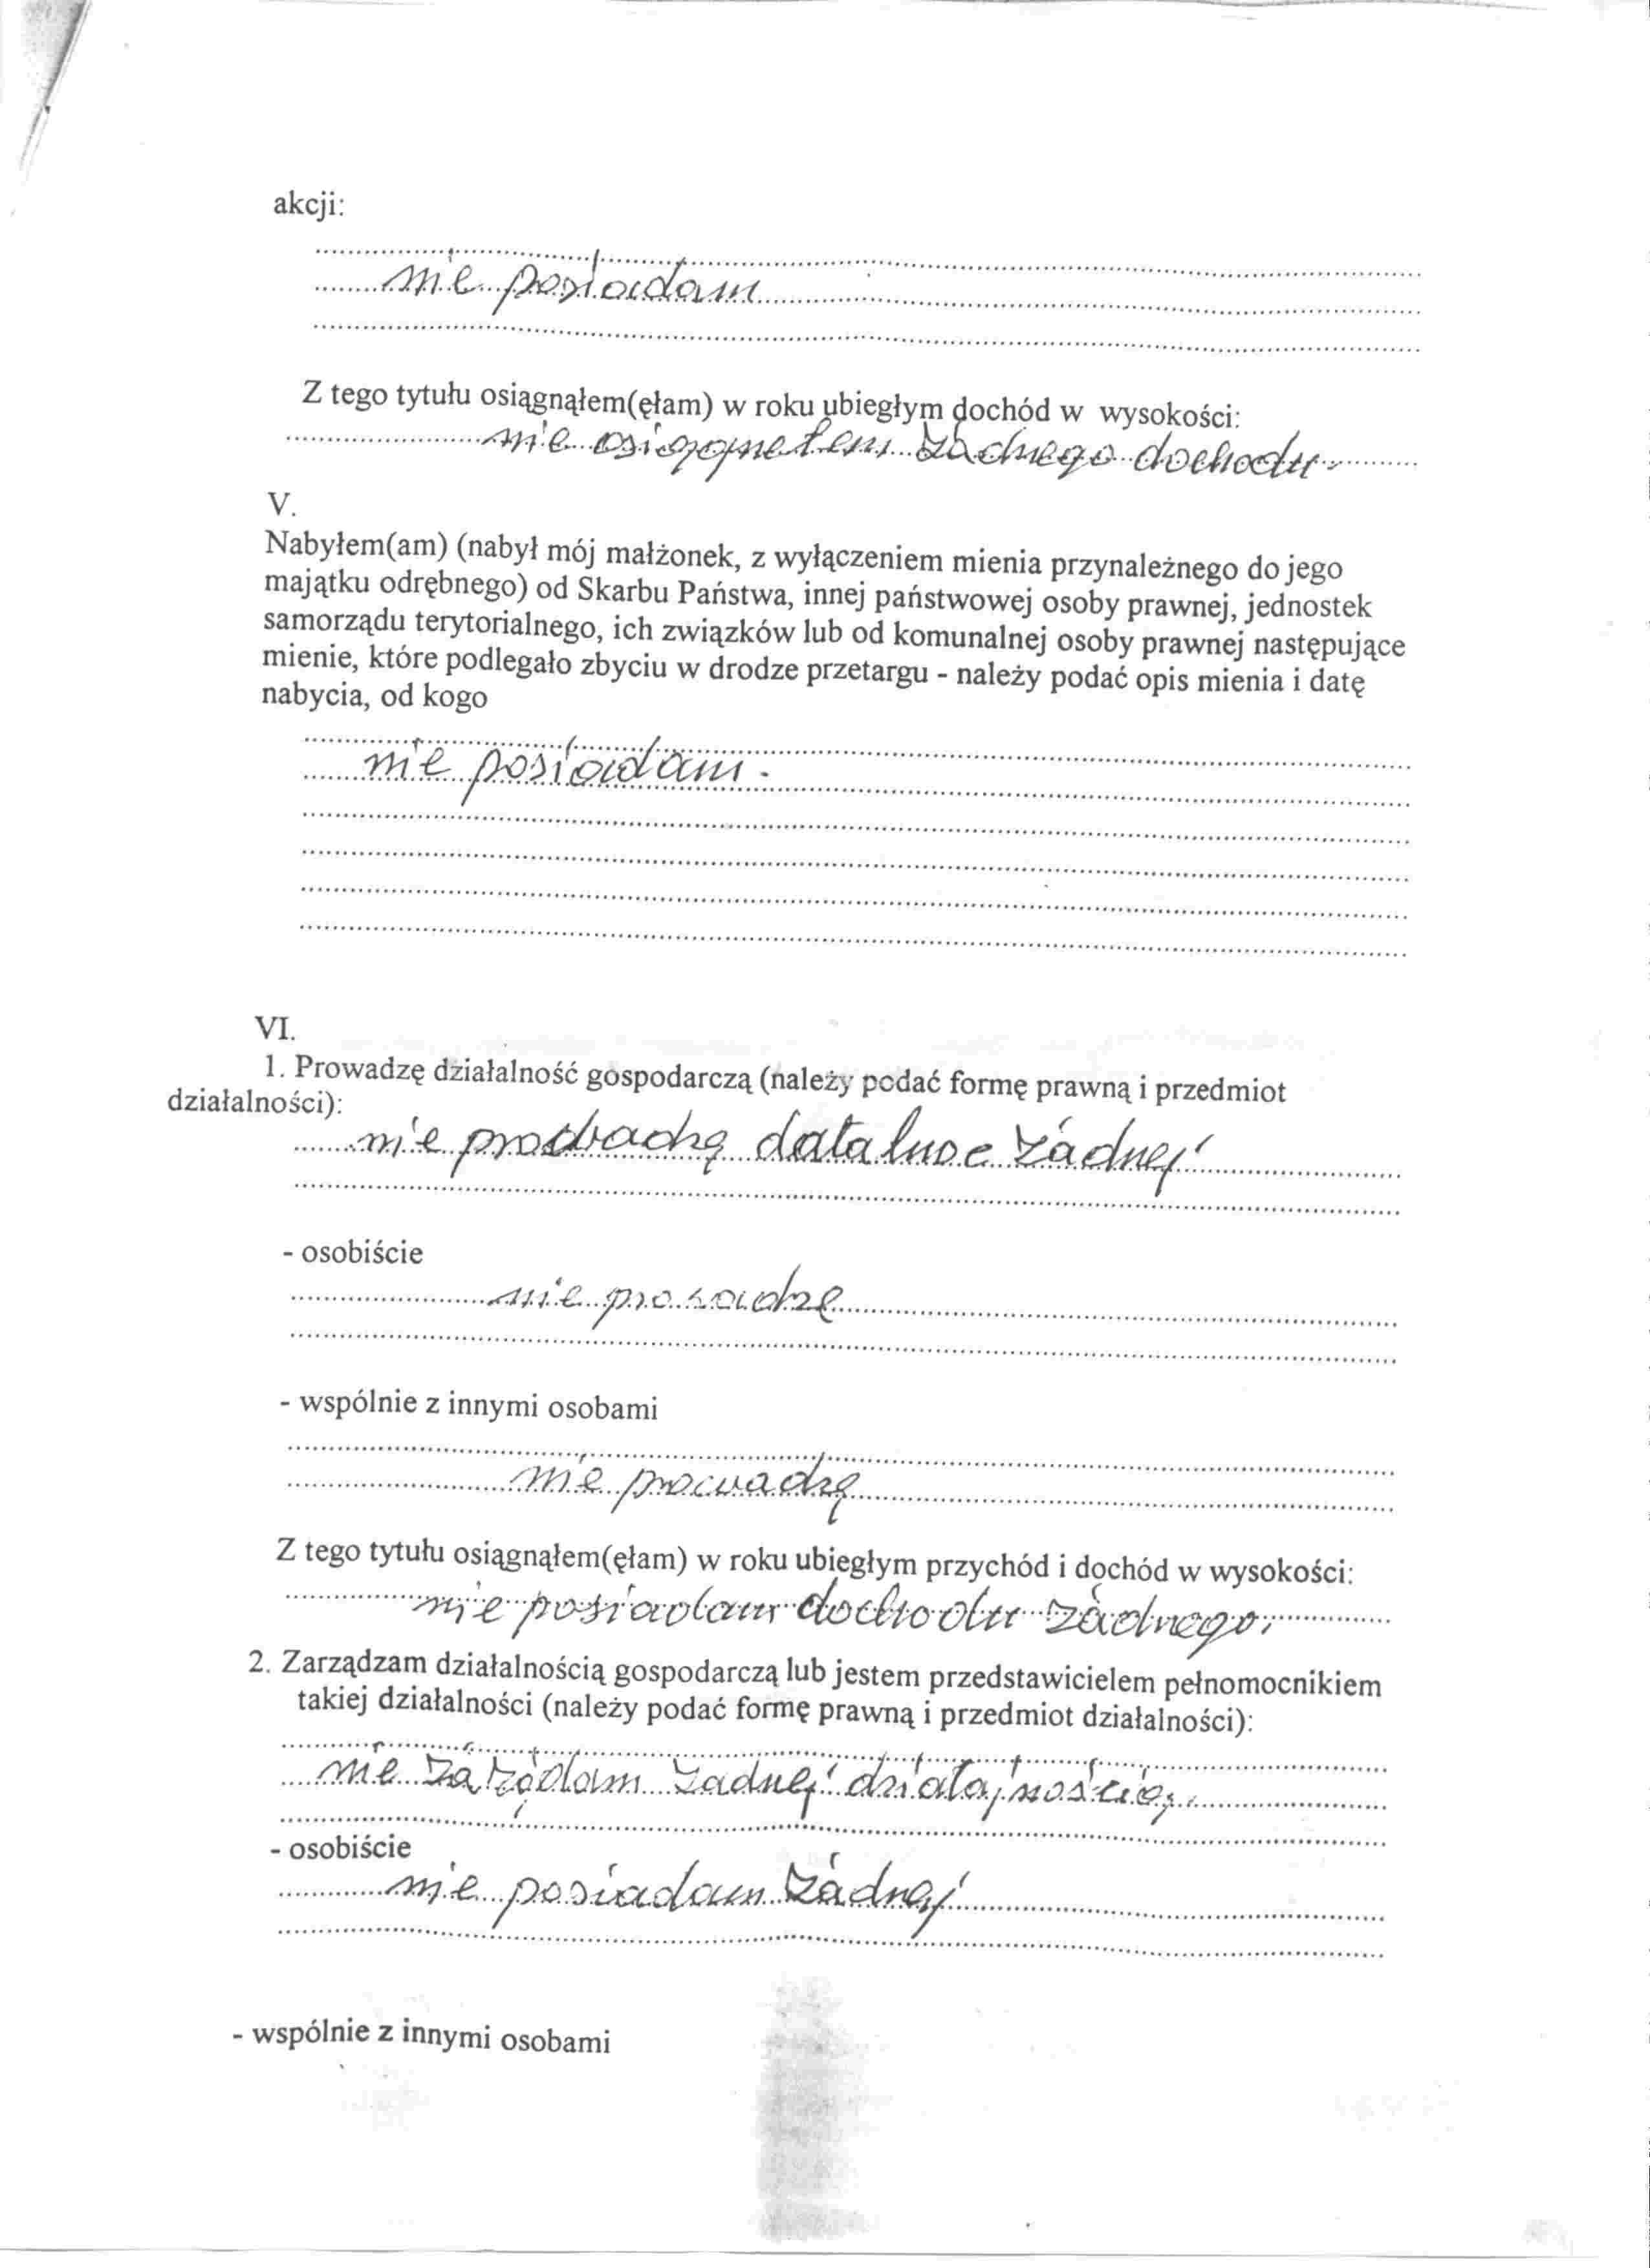 akcji:
nie posiadam
Z tego tytułu osiągnąłem(ęłam) w roku ubiegłym dochód w wysokości:
nie osiągnełem żadnego dochodu
V.
Nabyłem(am) (nabył mój małżonek, z wyłączeniem mienia przynależnego do jego
majątku odrębnego) od Skarbu Państwa, innej państwowej osoby prawnej, jednostek
samorządu terytorialnego, ich związków lub od komunalnej osoby prawnej następujące
mienie, które podlegało zbyciu w drodze przetargu - należy podać opis mienia i datę
nabycia, od kogo
nie posiadam.
VI.
1. Prowadzę działalność gospodarczą (należy podać formę prawną i przedmiot
działalności):
nie prowadzę żadnej
- osobiście
nie prowadzę
- wspólnie z innymi osobami
nie prowadzę
Z tego tytułu osiągnąłem(ęłam) w roku ubiegłym przychód i dochód w wysokości:
nie posiadam dochodu żadnego.
2. Zarządzam działalnością gospodarczą lub jestem przedstawicielem pełnomocnikiem
takiej działalności (należy podać formę prawną i przedmiot działalności):
nie żadnej działajnością.
- osobiście
nie posiadam żadnej
- wspólnie z innymi osobami